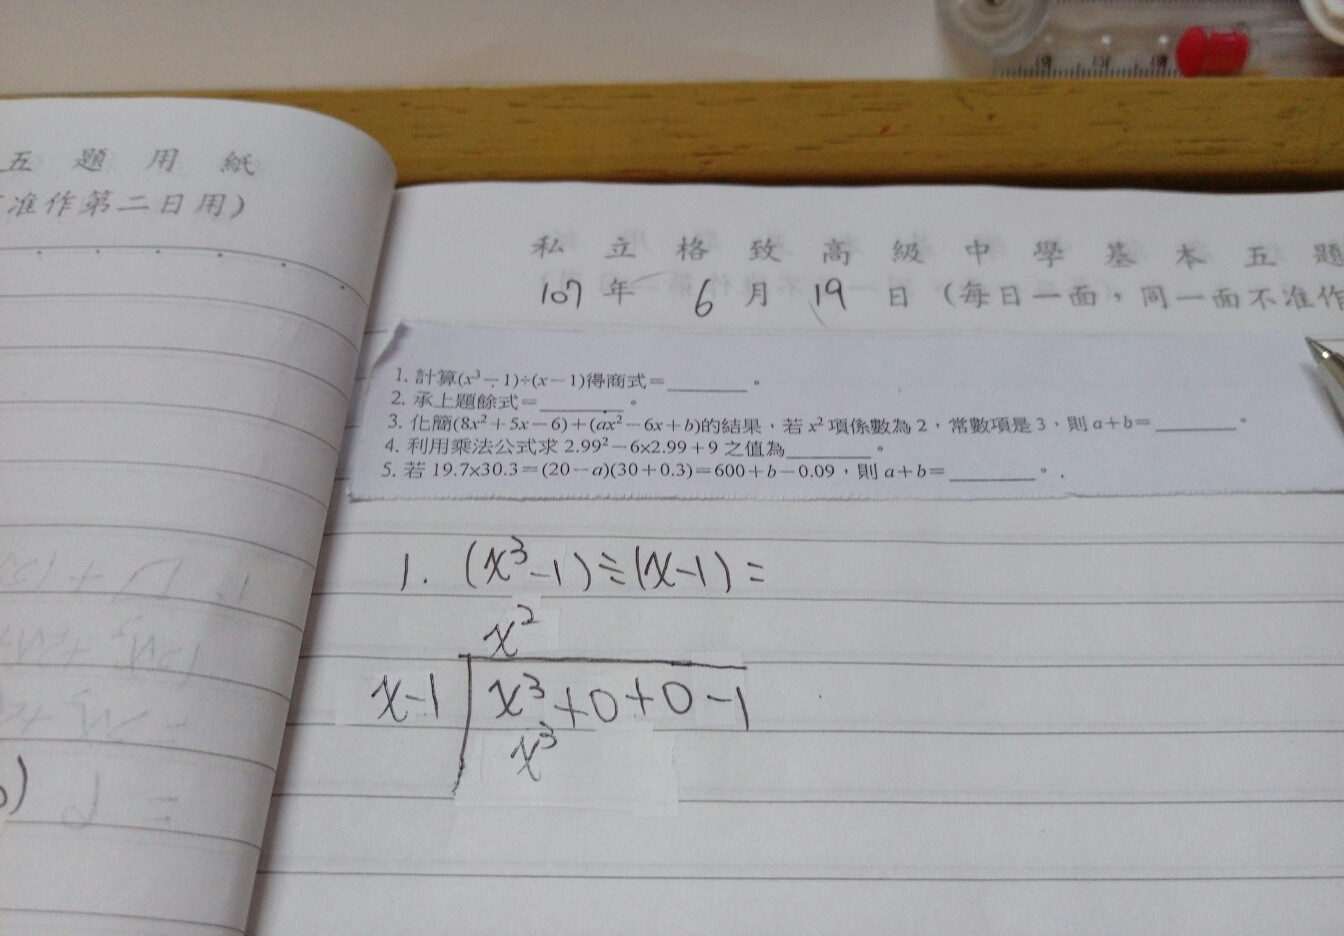 五題用紙
准作第二日用)
私立格致高級中學基本五題
107年 6月19日(每日一面,同一面不准作
1. 計算(x³－1)÷(x－1)得商式＝________。
2. 承上題餘式＝________。
3. 化簡(8x²＋5x－6)＋(ax²－6x＋b)的結果,若 x² 項係數為 2,常數項是 3,則 a＋b＝________。
4. 利用乘法公式求 2.99²－6×2.99＋9 之值為________。
5. 若 19.7×30.3＝(20－a)(30＋0.3)＝600＋b－0.09,則 a＋b＝________。
1. (x³-1)÷(x-1)=
x²
x-1 x³+0+0-1
x³